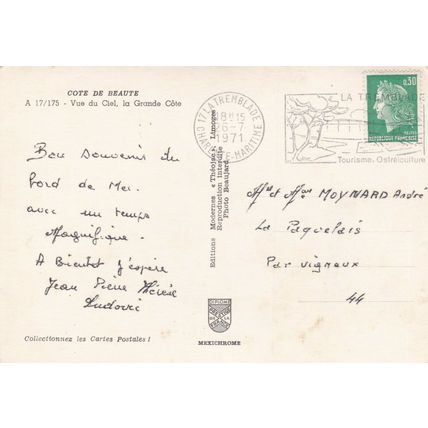 COTE DE BEAUTE
A 17/175 - Vue du Ciel, la Grande Côte
Bon souvenir du
bord de Mer.
avec un temps
Magnifique.
A Bientot j'espère
Jean Pierre Thérèse
Ludovic
Collectionnez les Cartes Postales !
Editions Modernes « Théojac » Limoges
Reproduction Interdite
Photo Beaujard
DIPLOME
MEXICHROME
17 LA TREMBLADE
18H15
26-7
1971
CHARENTE-MARITIME
LA TREMBLADE
Tourisme. Ostréiculture
0,30
REPUBLIQUE FRANCAISE
POSTES
Mr et Mme MOYNARD André
La Paquelais
Par vigneux
44